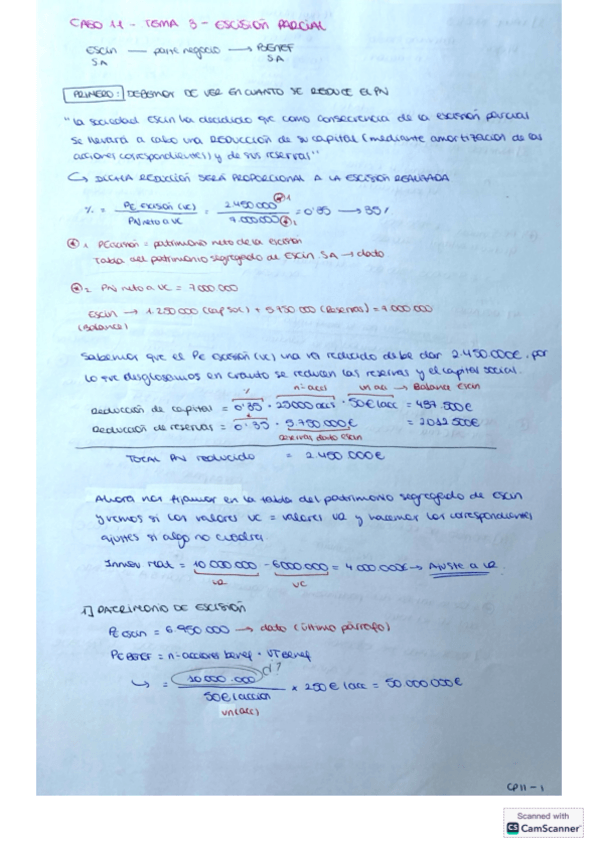 CASO 11 - TEMA 3 - ESCISIÓN PARCIAL
ESCIN — parte negocio → BENEF
SA SA
PRIMERO: DEBEMOS DE VER EN CUANTO SE REDUCE EL PN
"La sociedad Escin ha decidido que como consecuencia de la escisión parcial
se llevará a cabo una REDUCCIÓN de su capital (mediante amortización de las
acciones correspondientes) y de sus reservas"
↳ DICHA REDUCCIÓN SERÁ PROPORCIONAL A LA ESCISIÓN REALIZADA
% = PE escisión (VC) / PN neto a VC = 2.450.000 *1 / 7.000.000 *2 = 0'35 → 35%
* 1 = patrimonio neto de la escisión
Tabla del patrimonio segregado de ESCIN SA → dato
* 2 PN neto a VC = 7.000.000
Escin → 1.250.000 (cap soc) + 5.750.000 (Reservas) = 7.000.000
(Balance)
Sabemos que el PE escisión (VC) una vez reducido debe dar 2.450.000€, por
lo que desglosamos en cuanto se reducen las reservas y el capital social.
% nº accs vn acc → Balance Escin
Reducción de capital = 0'35 · 25000 accs · 50€/acc = 437.500€
Reducción de reservas = 0'35 · 5.750.000€ = 2.012.500€
reservas dato escin
TOTAL PN reducido = 2.450.000€
Ahora nos fijamos en la tabla del patrimonio segregado de escin
y vemos si los valores VC = valores VR y hacemos los correspondientes
ajustes si algo no cuadra.
Inmov mat = 10.000.000 - 6000.000 = 4.000.000€ → Ajuste a VR
VR VC
1] PATRIMONIO DE ESCISIÓN
PE escin = 6.950.000 → dato (último párrafo)
PE BENEF = nº acciones benef · VT benef
↳ = 10.000.000 / 50€/acción × 250€/acc = 50.000.000€
d?
vn (acc)
CP11 - 1
Scanned with
CS CamScanner